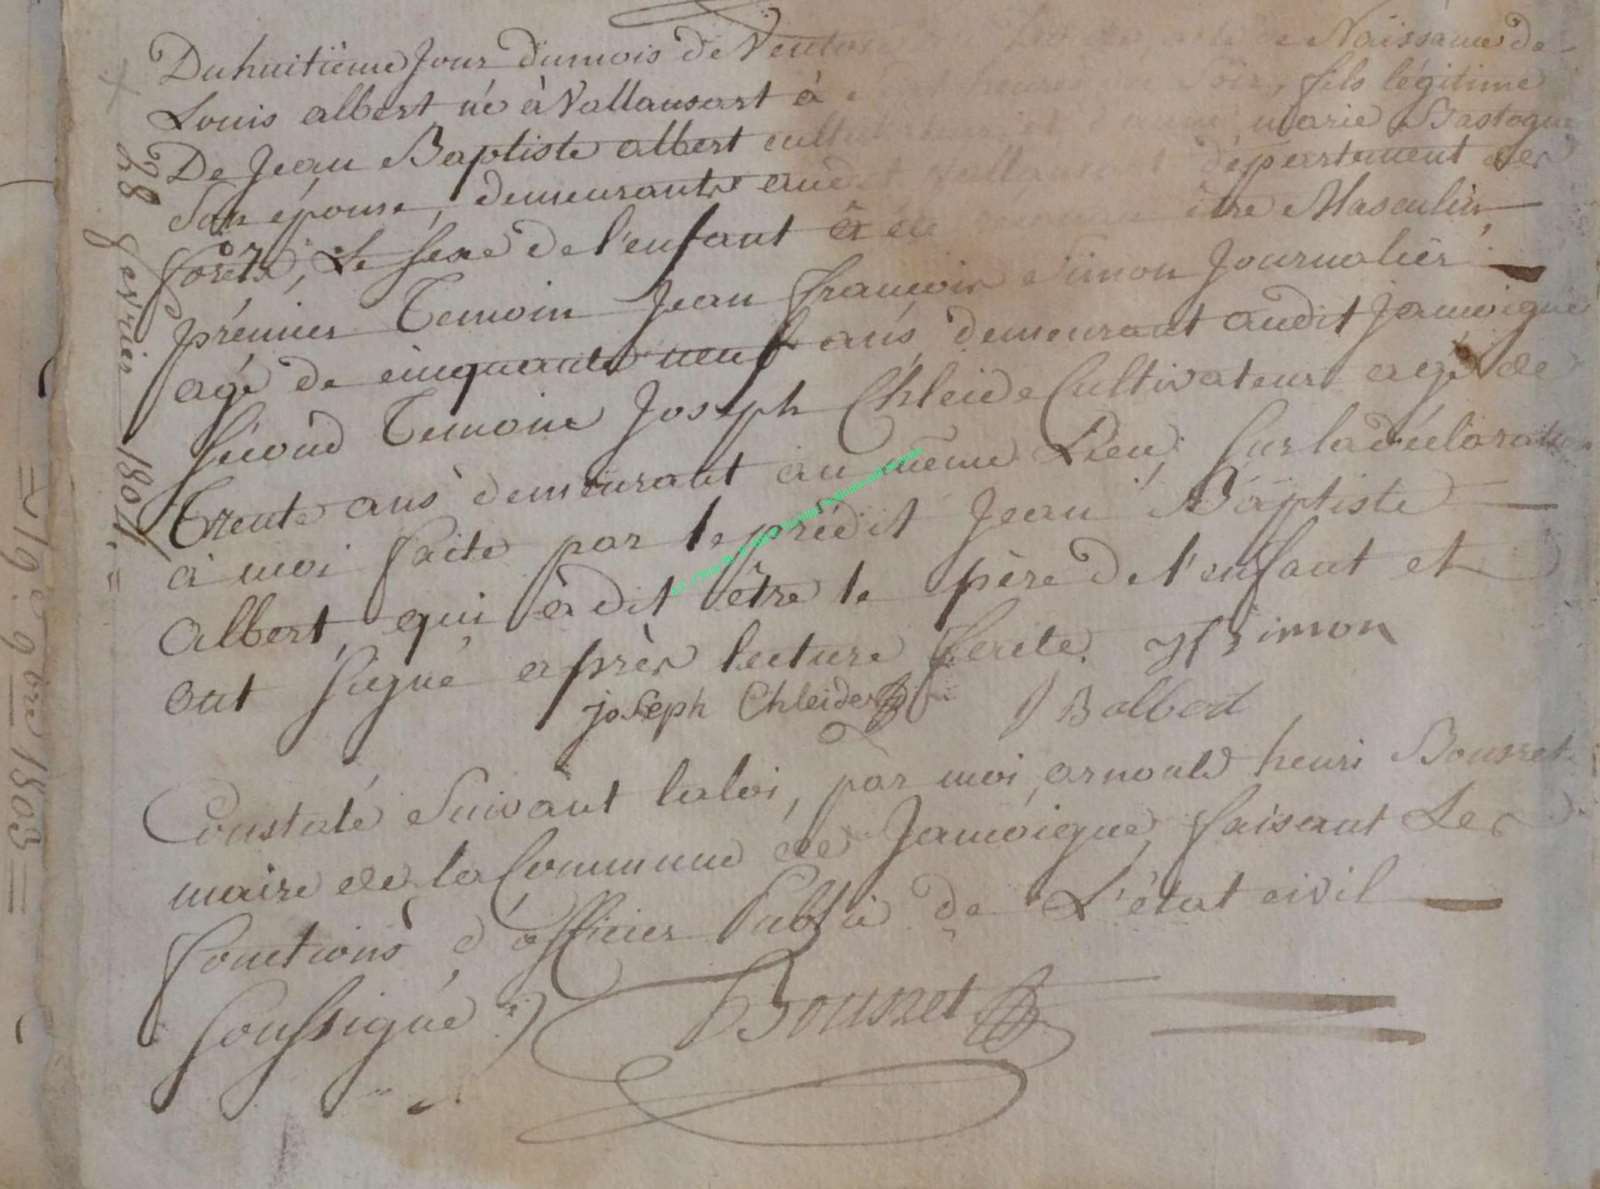 Du huitième Jour du mois de Ventose de Naissance de
Louis albert né à Vallansart à heures du Soir, fils légitime
De Jean Baptiste albert marie Bastogne
Son épouse, demeurants audit vallansart département des
forêts, Le sexe de l'enfant à été être Masculin,
prémier Temoin Jean françois Simon Journalier
agé de cinquante neuf ans demeurant audit Jamoigne
Second Temoin Joseph Chleide Cultivateur agé de
Trente ans demeurant au même Lieu, Sur la déclaration
à moi faite par le prédit Jean Baptiste
Albert, qui à dit être le père de l'enfant et
ont signé après lecture faite. Simon
joseph Chleider J B albert
Constaté Suivant la loi, par moi arnould henri Bousret
maire de la Commune de Jamoigne, faisant Les
fonctions d'officier Public de L'état civil
Soussigné Bousret
28 fevrier 1804. =
= 19 9bre 1803 =